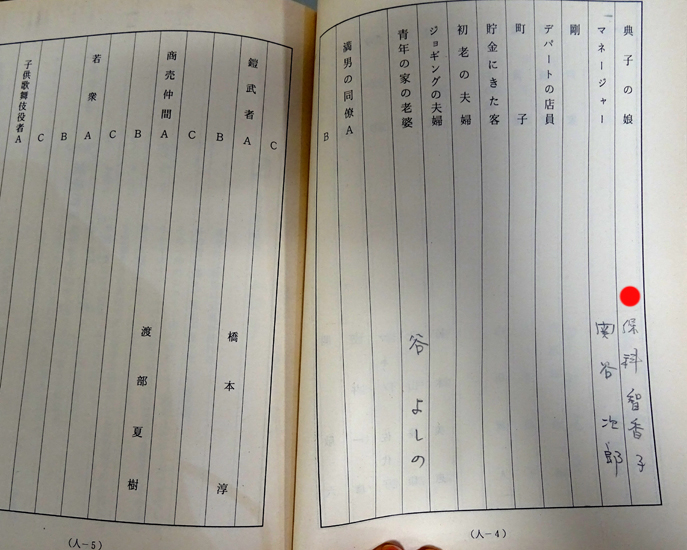 典子の娘 保科智香子
マネージャー 関谷次郎
剛
デパートの店員
町子
貯金にきた客
初老の夫婦
ジョギングの夫婦
青年の家の老婆 谷よしの
満男の同僚A
B
(人-4)
C
鎧武者A 橋本淳
B
C
商売仲間A 渡部夏樹
B
C
若衆A
B
C
子供歌舞伎役者A
(人-5)